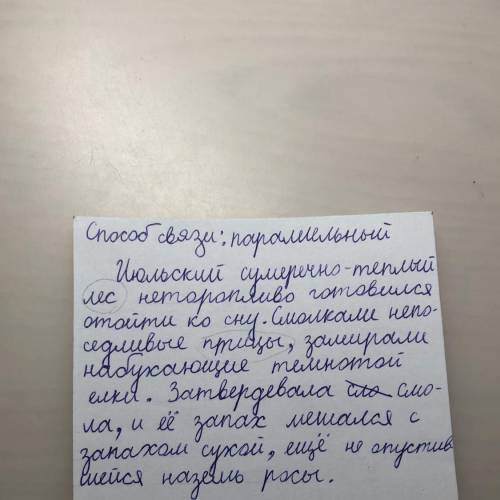 Способ связи: параллельный
Июльский сумеречно-теплый
лес неторопливо готовился
отойти ко сну. Смолкали непо-
седливые птицы, замирали
набухающие темнотой
елки. Затвердевала смо-
ла, и её запах мешался с
запахом сухой, ещё не опустив
шейся наземь росы.